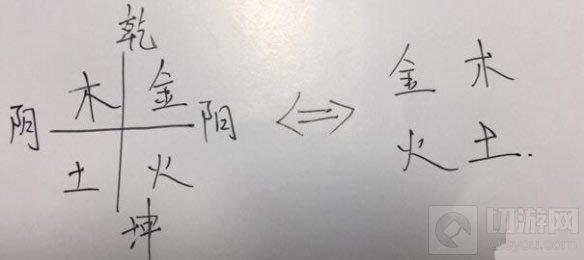 乾
木 金
阴 阳
土 火
坤
⇔
金 木
火 土.
切游网